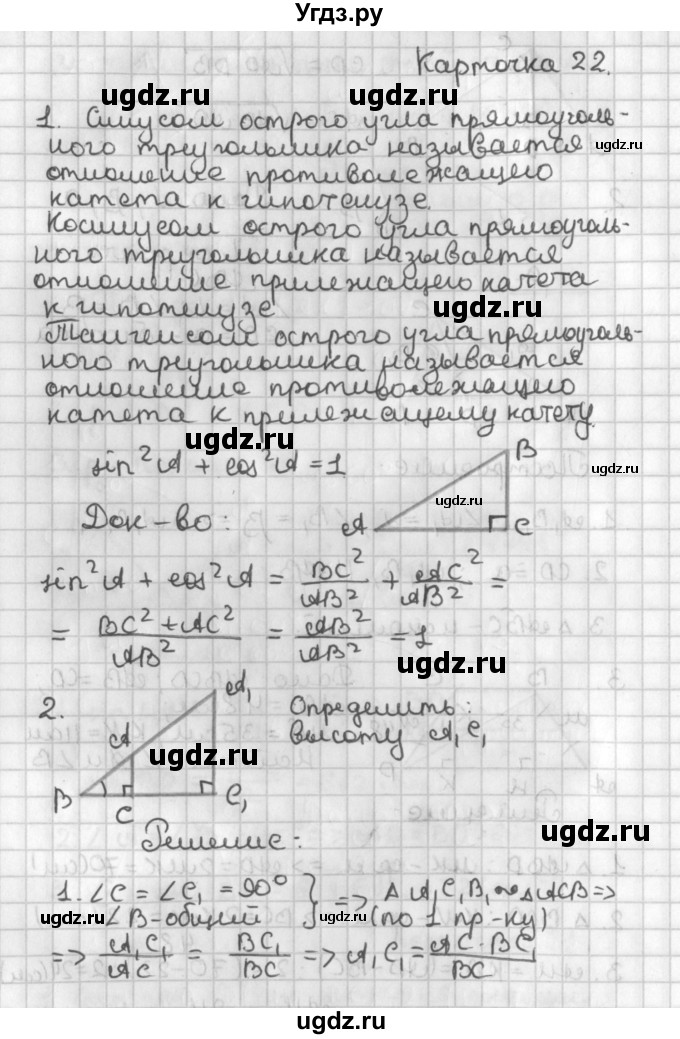 Угдз.ру
Карточка 22.
ugdz.ru ugdz.ru
1. Синусом острого угла прямоуголь-
ного треугольника называется ugdz.ru
отношение противолежащего
катета к гипотенузе.
Косинусом острого угла прямоуголь-
ного треугольника называется
отношение прилежащего катета
к гипотенузе ugdz.ru
Тангенсом острого угла прямоуголь-
ного треугольника называется
отношение противолежащего
катета к прилежащему катету.
ugdz.ru
sin²A + cos²A = 1
B
ugdz.ru
ugdz.ru
Док-во:
A C
sin²A + cos²A = BC²/AB² + AC²/AB² =
= (BC² + AC²)/AB² = AB²/AB² = 1
ugdz.ru
2.
A₁
Определить:
высоту A₁C₁
A
ugdz.ru
B
C
C₁
ugdz.ru
Решение:
1. ∠C = ∠C₁ = 90° } => Δ A₁C₁B₁ ∾ ΔACB =>
∠B-общий (по 1 пр-ку)
ugdz.ru ugdz.ru ugdz.ru
=> A₁C₁/AC = BC₁/BC => A₁C₁ = AC · BC₁/BC
ugdz.ru